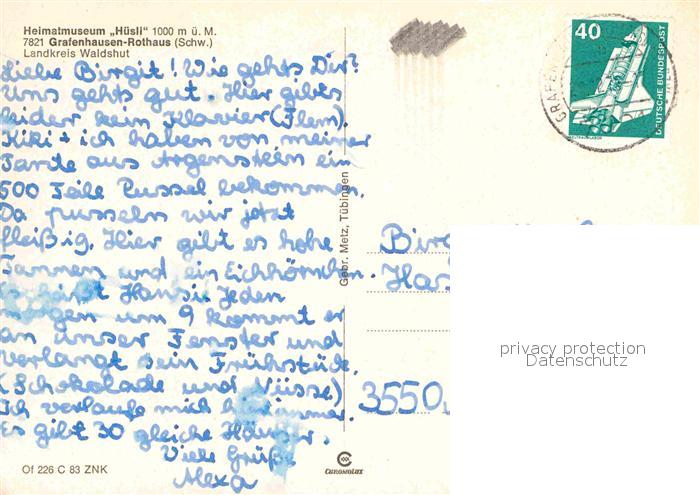 Heimatmuseum „Hüsli" 1000 m ü. M.
7821 Grafenhausen-Rothaus (Schw.)
Landkreis Waldshut
Liebe Birgit! Wie gehts Dir?
Uns gehts gut. Hier gibts
leider kein Klavier (Flem).
Kiki + ich haben von meiner
Tante aus Argenstein ein
500 Teile Pussel bekommen.
Da pusseln wir jetzt
fleißig. Hier gibt es hohe
Tannen und ein Eichhörnchen.
Hansi. Jeden
Morgen um 9 kommt er
an unser Fenster und
verlangt sein Frühstück.
(Schokolade und Nüsse)
Ich verlaufe mich immer.
Es gibt 30 gleiche Häuser.
Viele Grüße
Alexa
Of 226 C 83 ZNK
Gebr. Metz, Tübingen
CHROMOLUX
40
DEUTSCHE BUNDESPOST
GRAFEN
Bir
Har
3550
privacy protection
Datenschutz